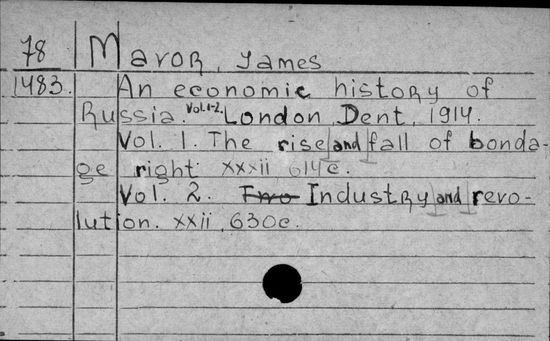 78 Mavor, James
1483. An economic history of
Russia. Vol.1-2. London, Dent, 1914.
Vol. 1. The rise and fall of bonda-
ge right xxxii, 614c.
Vol. 2. Two Industry and revo-
lution. xxii, 630c.